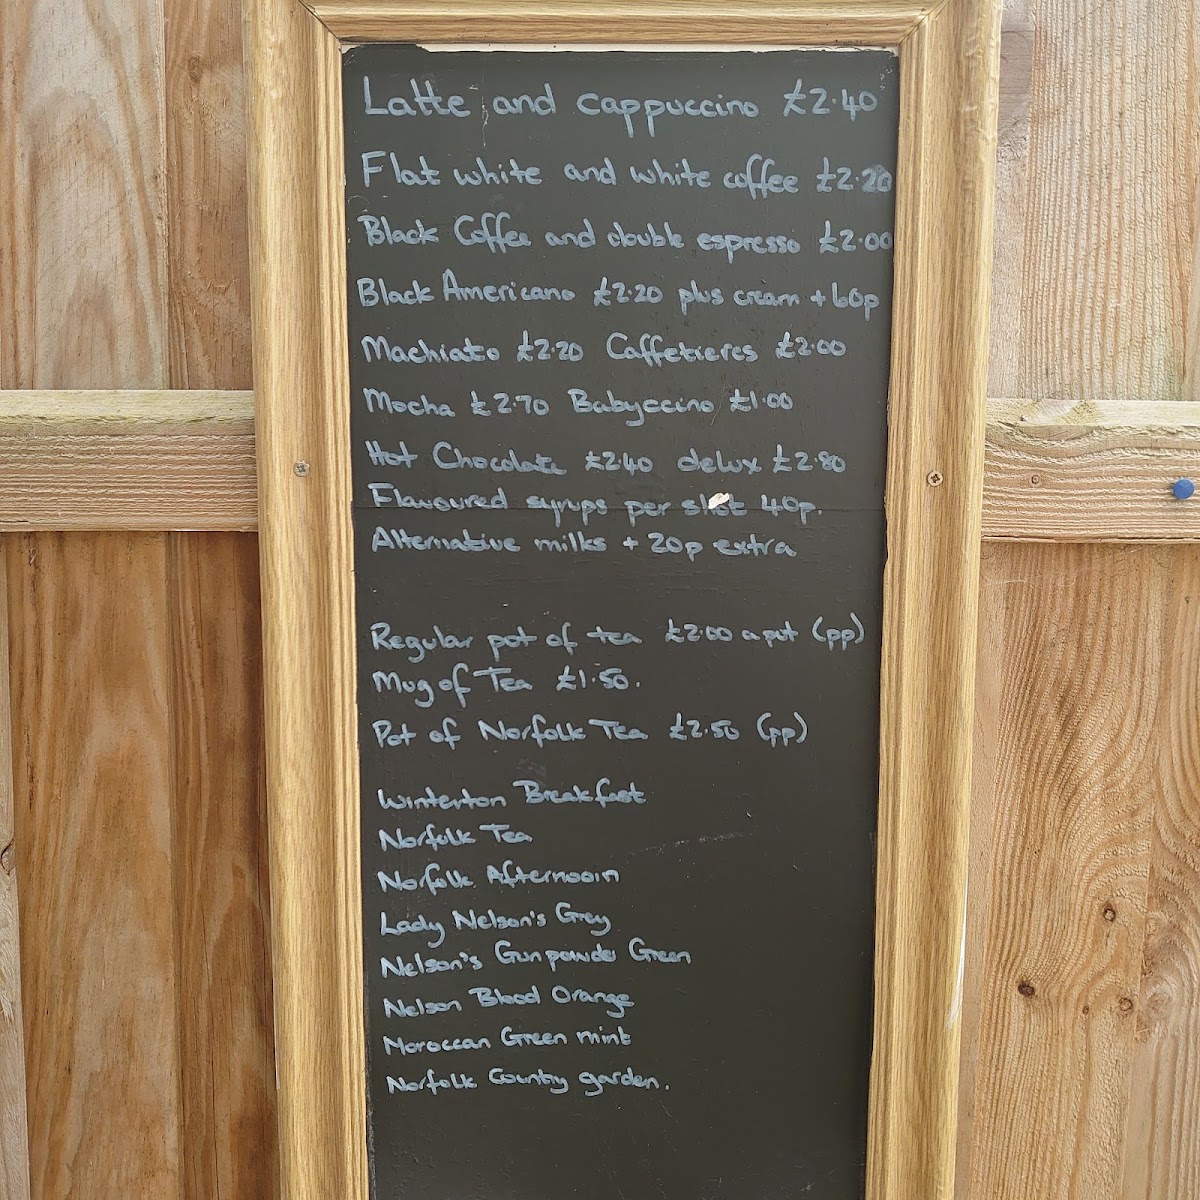 Latte and cappuccino £2.40
Flat white and white coffee £2.20
Black Coffee and double espresso £2.00
Black Americano £2.20 plus cream + 60p
Machiato £2.20 Caffetieres £2.00
Mocha £2.70 Babyccino £1.00
Hot Chocolate £2.40 delux £2.80
Flavoured syrups per shot 40p.
Alternative milks + 20p extra
Regular pot of tea £2.00 a pot (pp)
Mug of Tea £1.50.
Pot of Norfolk Tea £2.50 (pp)
Winterton Breakfast
Norfolk Tea
Norfolk Afternooin
Lady Nelson's Grey
Nelson's Gunpowder Green
Nelson Blood Orange
Moroccan Green mint
Norfolk Country garden.